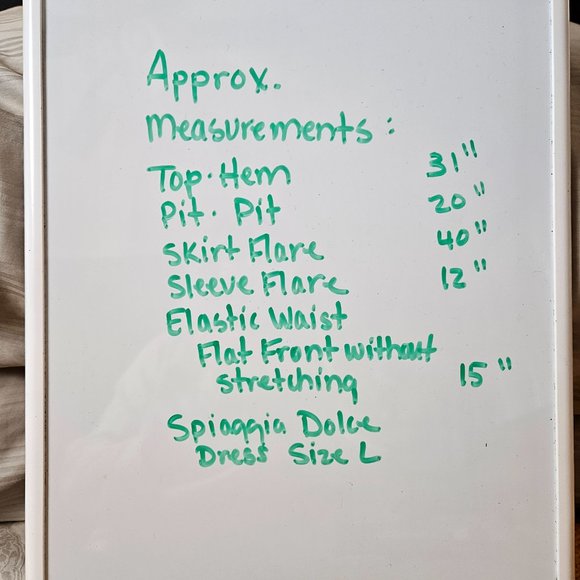 Approx.
Measurements:
Top-Hem 31"
Pit-Pit 20"
Skirt Flare 40"
Sleeve Flare 12"
Elastic Waist
Flat Front without
stretching 15"
Spiaggia Dolce
Dress Size L